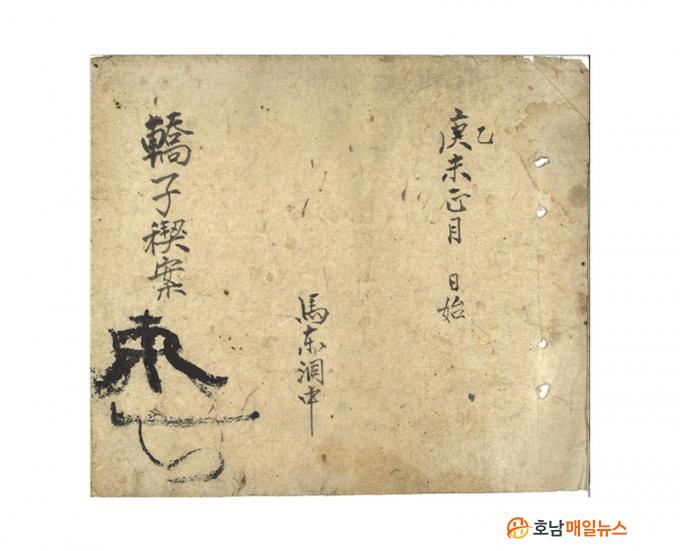 乙
庚未正月 日始
馬東洞中
轎子稧案
호남매일뉴스